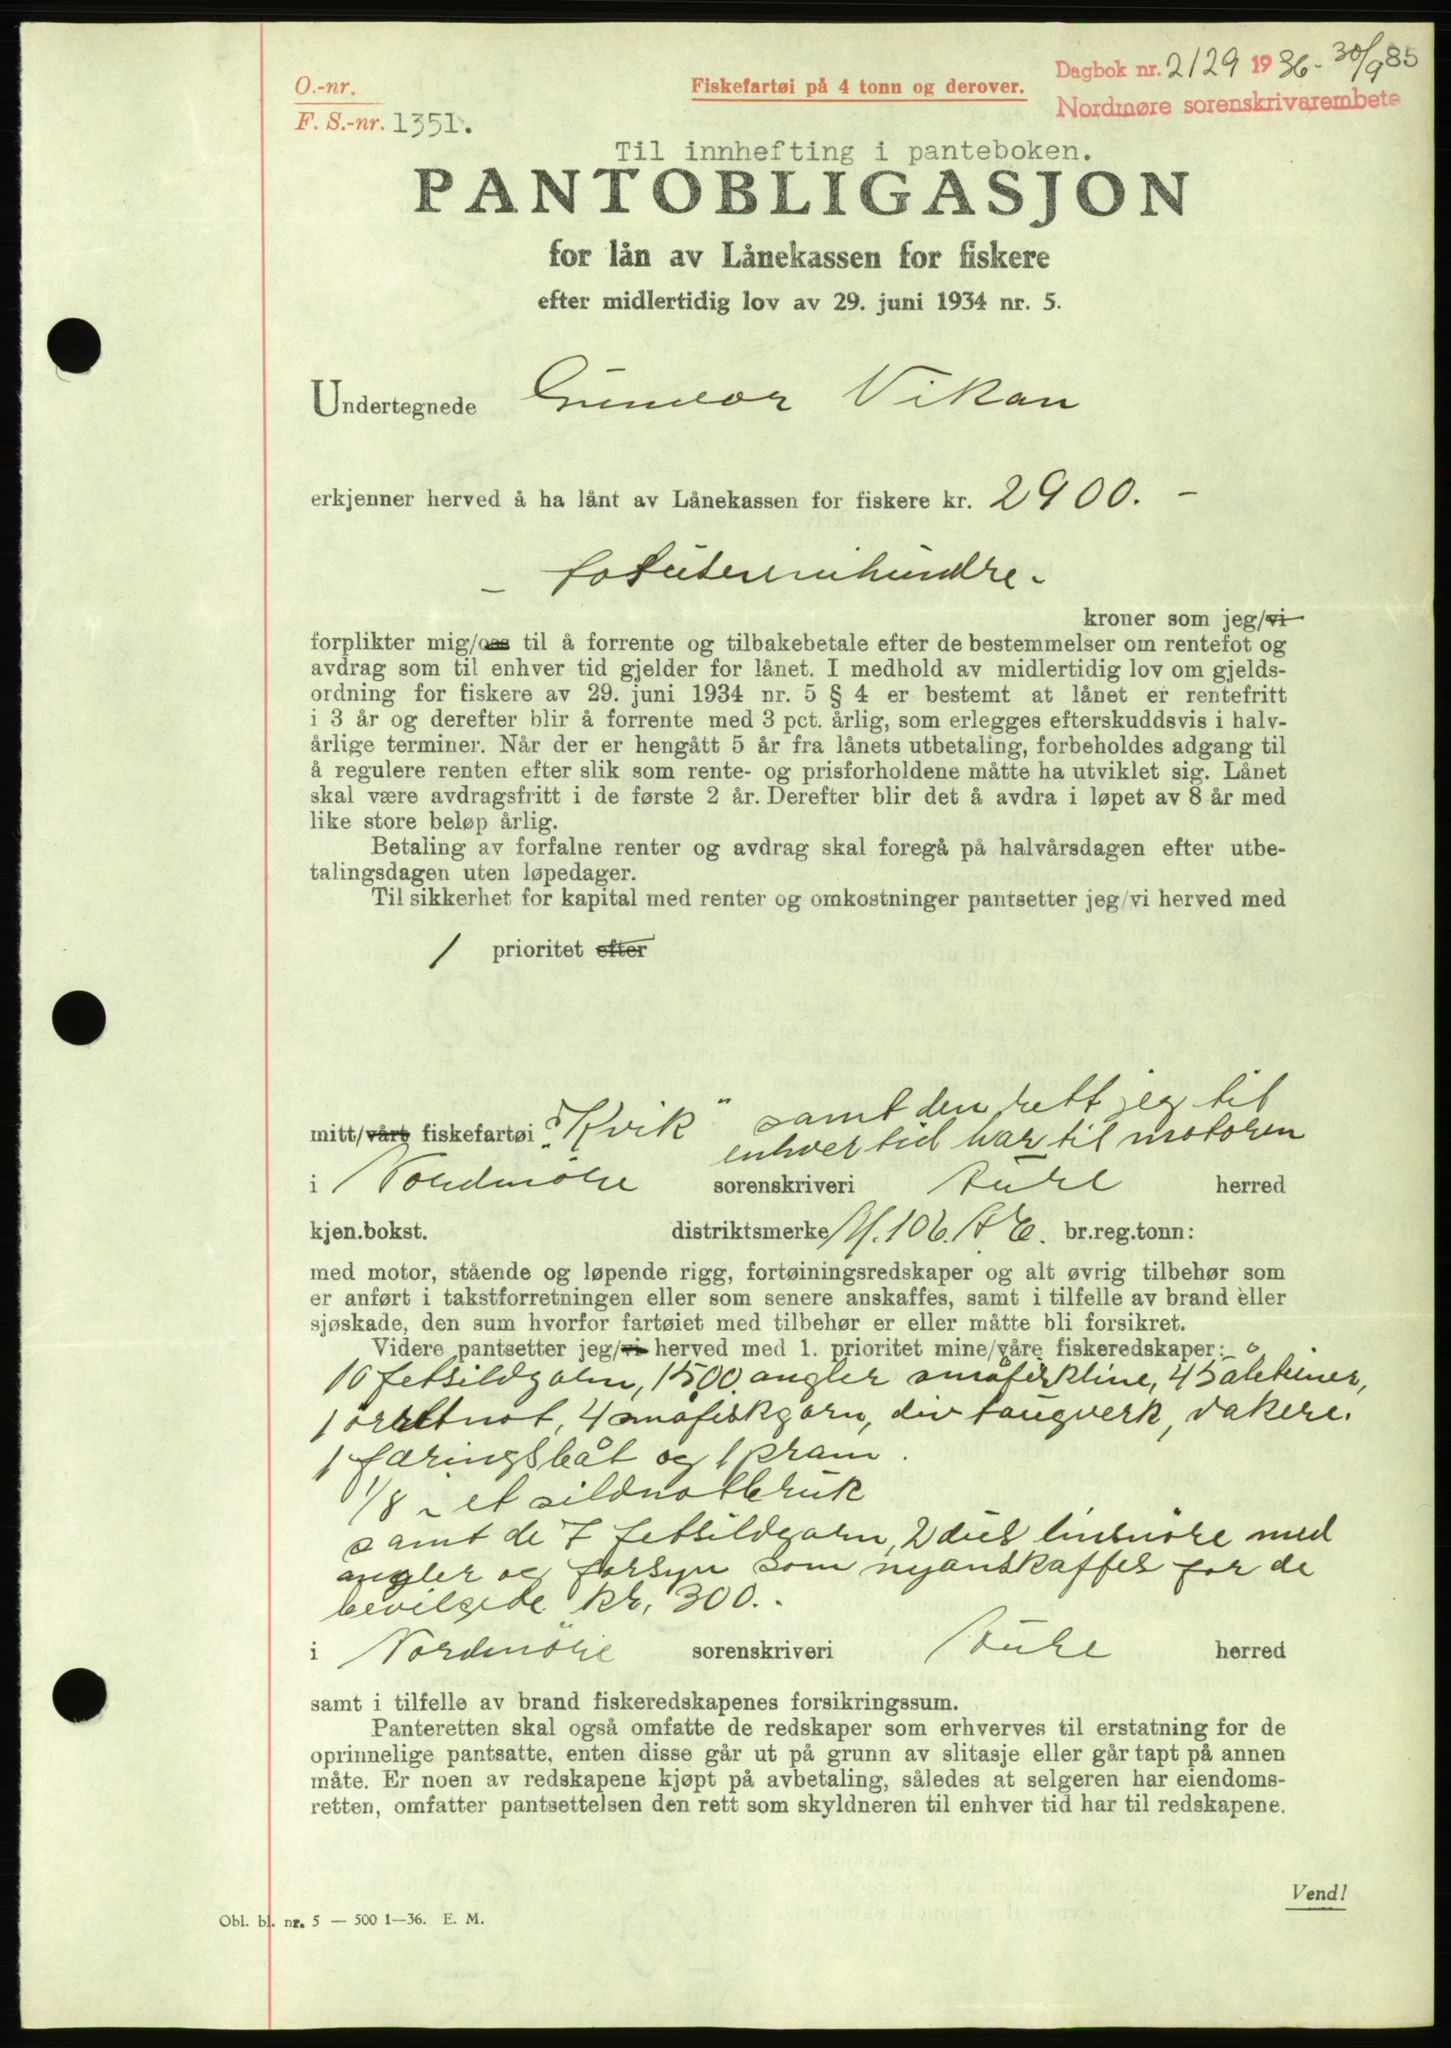 Dagbok nr. 2129 1936 - 30/9 85
Nordmøre sorenskrivarembete
Fiskefartøi på 4 tonn og derover.
O.-nr.
F. S.-nr. 1351.
Til innhefting i panteboken.
PANTOBLIGASJON
for lån av Lånekassen for fiskere
efter midlertidig lov av 29. juni 1934 nr. 5.
Undertegnede Vikan
erkjenner herved å ha lånt av Lånekassen for fiskere kr. 2900. -
kroner som jeg/vi
forplikter mig/oss til å forrente og tilbakebetale efter de bestemmelser om rentefot og
avdrag som til enhver tid gjelder for lånet. I medhold av midlertidig lov om gjelds-
ordning for fiskere av 29. juni 1934 nr. 5 § 4 er bestemt at lånet er rentefritt
i 3 år og derefter blir å forrente med 3 pct. årlig, som erlegges efterskuddsvis i halv-
årlige terminer. Når der er hengått 5 år fra lånets utbetaling, forbeholdes adgang til
å regulere renten efter slik som rente- og prisforholdene måtte ha utviklet sig. Lånet
skal være avdragsfritt i de første 2 år. Derefter blir det å avdra i løpet av 8 år med
like store beløp årlig.
Betaling av forfalne renter og avdrag skal foregå på halvårsdagen efter utbe-
talingsdagen uten løpedager.
Til sikkerhet for kapital med renter og omkostninger pantsetter jeg/vi herved med
1 prioritet efter
samt den rett jeg til
mitt/vårt fiskefartøi "Kvik" enhver tid har til motoren
i Nordmøre sorenskriveri Aure herred
kjen.bokst. distriktsmerke M. 106. A E. br.reg.tonn:
med motor, stående og løpende rigg, fortøiningsredskaper og alt øvrig tilbehør som
er anført i takstforretningen eller som senere anskaffes, samt i tilfelle av brand eller
sjøskade, den sum hvorfor fartøiet med tilbehør er eller måtte bli forsikret.
Videre pantsetter jeg/vi herved med 1. prioritet mine/våre fiskeredskaper:
10 fetsildgarn, 1500 angler småfiskline, 45 åleteiner,
1 not, 4 småfiskgarn, div taugverk, vakere.
1 færingsbåt og 1 pram.
1/8 - et sildnotbruk
samt de 7 fetsildgarn, 2 dus linsnøre med
angler og forsyn som nyanskaffes for de
bevilgede kr. 300. -
i Nordmøre sorenskriveri Aure herred
samt i tilfelle av brand fiskeredskapenes forsikringssum.
Panteretten skal også omfatte de redskaper som erhverves til erstatning for de
oprinnelige pantsatte, enten disse går ut på grunn av slitasje eller går tapt på annen
måte. Er noen av redskapene kjøpt på avbetaling, således at selgeren har eiendoms-
retten, omfatter pantsettelsen den rett som skyldneren til enhver tid har til redskapene.
Vend!
Obl. bl. nr. 5 — 500 1—36. E. M.